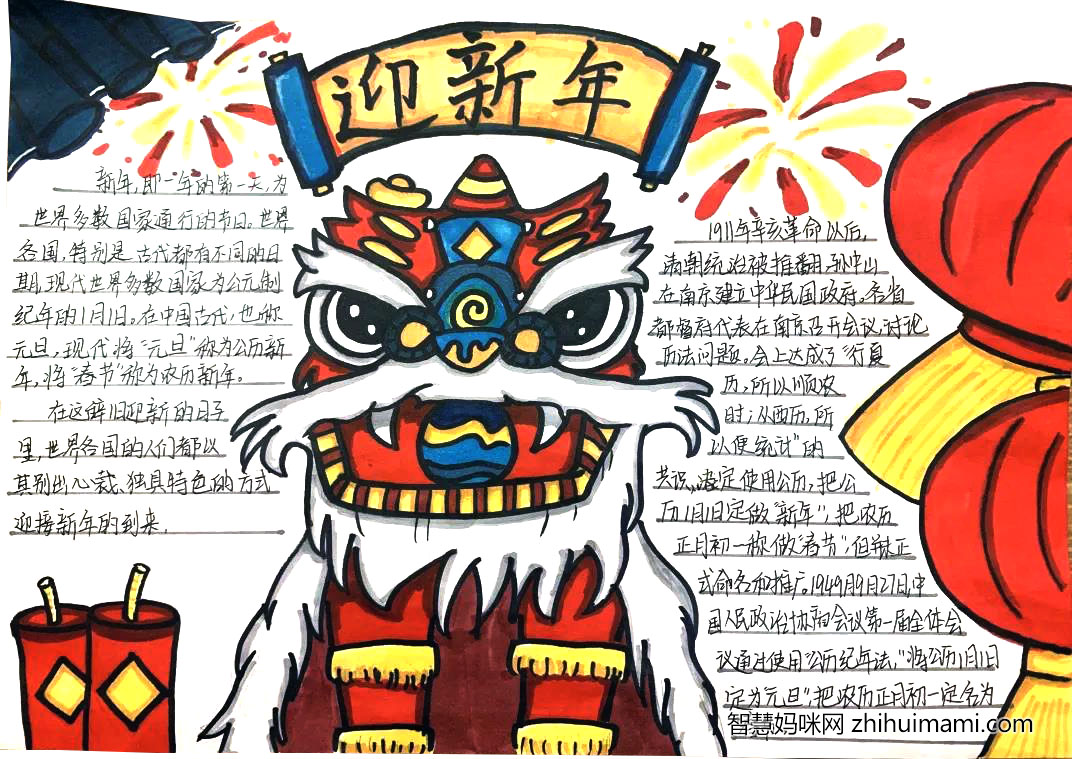 迎新年
新年,即一年的第一天,为
世界多数国家通行的节日。世界
各国,特别是古代都有不同的日
期,现代世界多数国家为公元制
纪年的1月1日。在中国古代,也称
元旦,现代将“元旦”称为公历新
年,将“春节”称为农历新年。
在这辞旧迎新的日子
里,世界各国的人们都以
其别出心裁、独具特色的方式
迎接新年的到来.
1911年辛亥革命以后,
清朝统治被推翻,孙中山
在南京建立中华民国政府。各省
都督府代表在南京召开会议,讨论
历法问题。会上达成了“行夏
历,所以顺农
时;从西历,所
以便统计”的
共识,决定使用公历,把公
历1月1日定做“新年”,把农历
正月初一称做“春节”,但并正
式命名和推广。1949月9月27日,中
国人民政治协商会议第一届全体会
议通过使用“公历纪年法,”将公历1月1日
定为元旦”,把农历正月初一定名为
智慧妈咪网 zhihuimami.com